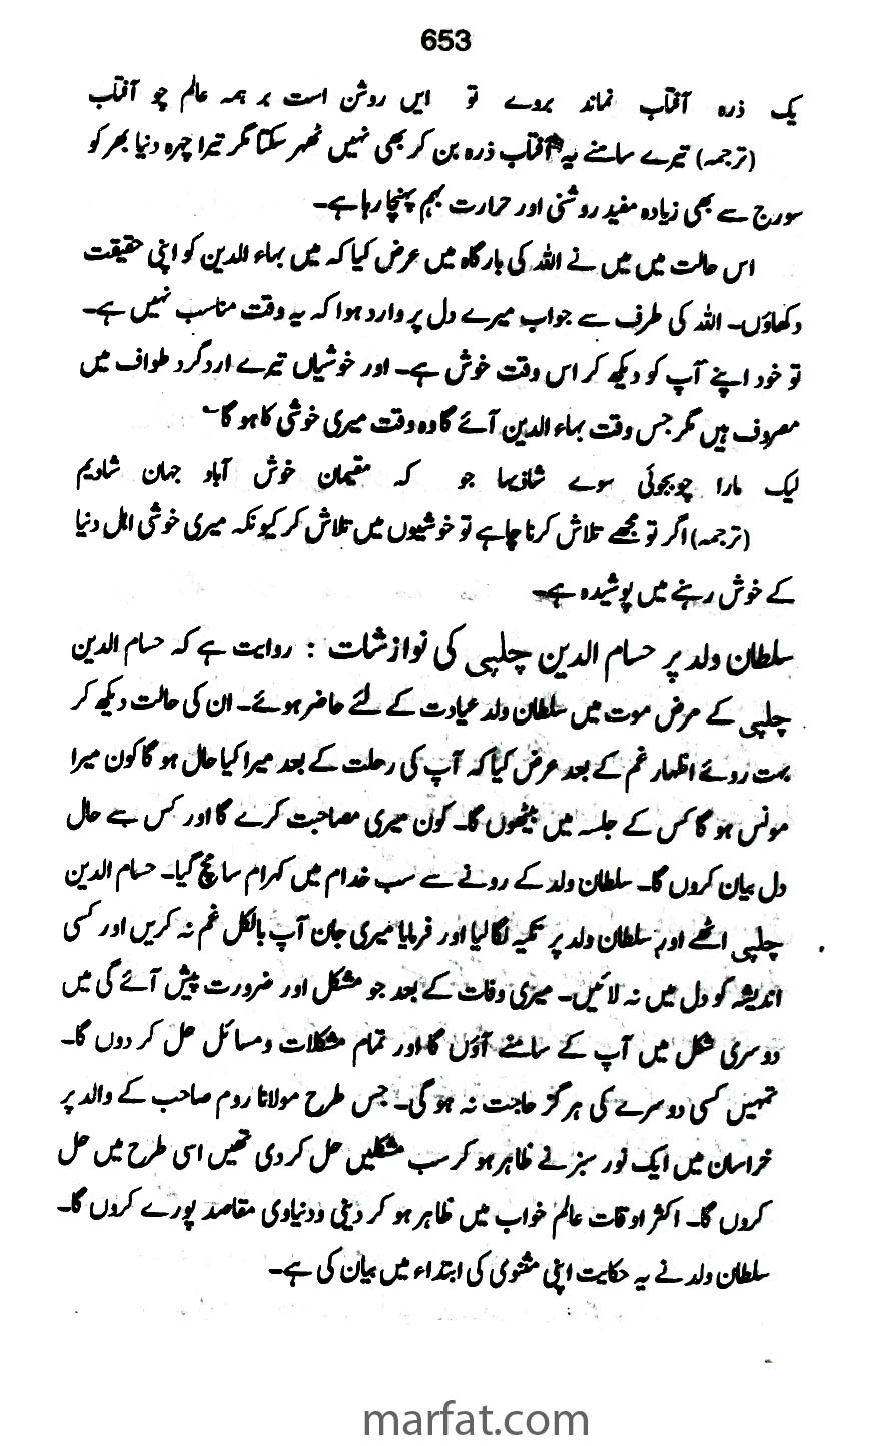 653
یک ذرہ آفتاب نماند بروے تو ایں روشن است بر ہمہ عالم چو آفتاب
(ترجمہ) تیرے سامنے یہ آفتاب ذرہ بن کر بھی نہیں ٹھہر سکتا مگر تیرا چہرہ دنیا بھر کو
سورج سے بھی زیادہ مفید روشنی اور حرارت بہم پہنچا رہا ہے۔
اس حالت میں میں نے اللہ کی بارگاہ میں عرض کیا کہ میں بہاء الدین کو اپنی حقیقت
دکھاؤں۔ اللہ کی طرف سے جواب میرے دل پر وارد ہوا کہ یہ وقت مناسب نہیں ہے۔
تو خود اپنے آپ کو دیکھ کر اس وقت خوش ہے۔ اور خوشیاں تیرے اردگرد طواف میں
مصروف ہیں مگر جس وقت بہاء الدین آئے گا وہ وقت میری خوشی کا ہو گا۔
لیک مارا چو بجوئی سوے شادیہا جو کہ مقیمان خوش آباد جہان شادیم
(ترجمہ) اگر تو مجھے تلاش کرنا چاہے تو خوشیوں میں تلاش کر کیونکہ میری خوشی اہل دنیا
کے خوش رہنے میں پوشیدہ ہے۔
سلطان ولد پر حسام الدین چلپی کی نوازشات : روایت ہے کہ حسام الدین
چلپی کے مرض موت میں سلطان ولد عیادت کے لئے حاضر ہوئے۔ ان کی حالت دیکھ کر
بہت روئے اظہار غم کے بعد عرض کیا کہ آپ کی رحلت کے بعد میرا کیا حال ہو گا کون میرا
مونس ہو گا کس کے جلسہ میں بیٹھوں گا۔ کون میری مصاحبت کرے گا اور کس سے حال
دل بیان کروں گا۔ سلطان ولد کے رونے سے سب خدام میں کہرام سا مچ گیا۔ حسام الدین
چلپی اٹھے اور سلطان ولد پر تکیہ لگا لیا اور فرمایا میری جان آپ بالکل غم نہ کریں اور کسی
اندیشہ کو دل میں نہ لائیں۔ میری وفات کے بعد جو مشکل اور ضرورت پیش آئے گی میں
دوسری شکل میں آپ کے سامنے آؤں گا اور تمام مشکلات و مسائل حل کر دوں گا۔
تمہیں کسی دوسرے کی ہرگز حاجت نہ ہو گی۔ جس طرح مولانا روم صاحب کے والد پر
خراسان میں ایک نور سبز نے ظاہر ہو کر سب مشکلیں حل کر دی تھیں اسی طرح میں حل
کروں گا۔ اکثر اوقات عالم خواب میں ظاہر ہو کر دینی و دنیاوی مقاصد پورے کروں گا۔
سلطان ولد نے یہ حکایت اپنی مثنوی کی ابتداء میں بیان کی ہے۔
marfat.com